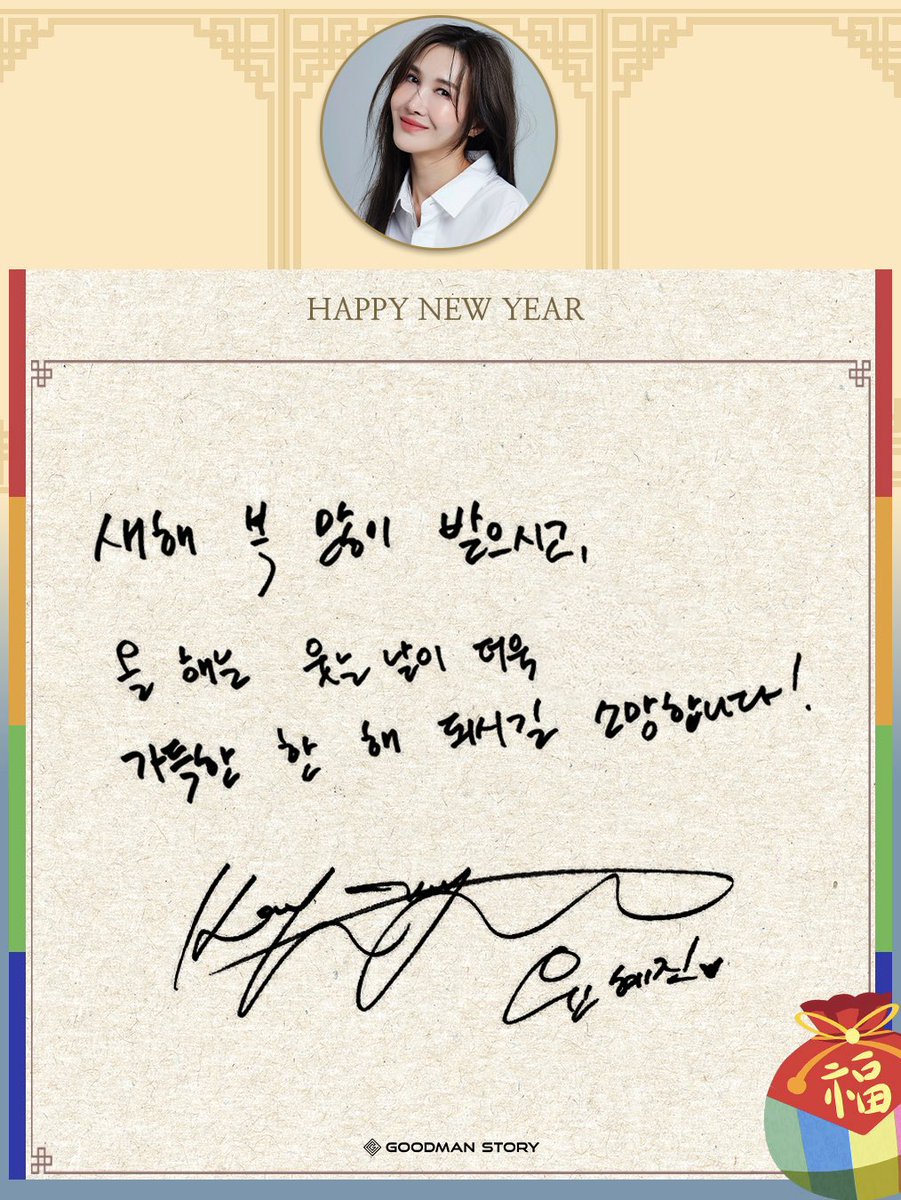 HAPPY NEW YEAR
새해 복 많이 받으시고,
올 해는 웃는 날이 더욱
가득한 한 해 되시길 소망합니다!
혜진
福
GOODMAN STORY